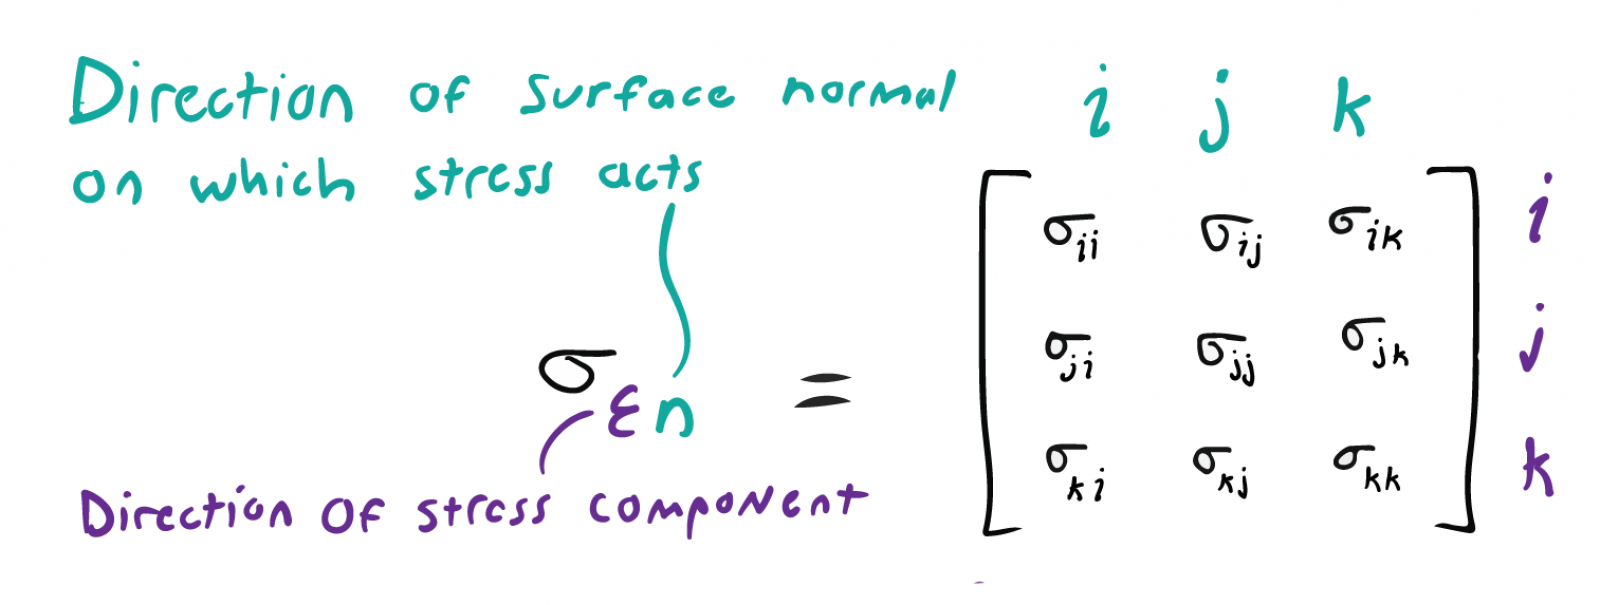 Direction of surface normal
on which stress acts
i j k
σ_{ii} σ_{ij} σ_{ik} i
σ_{ji} σ_{jj} σ_{jk} j
σ_{εn} =
σ_{ki} σ_{kj} σ_{kk} k
Direction of stress component